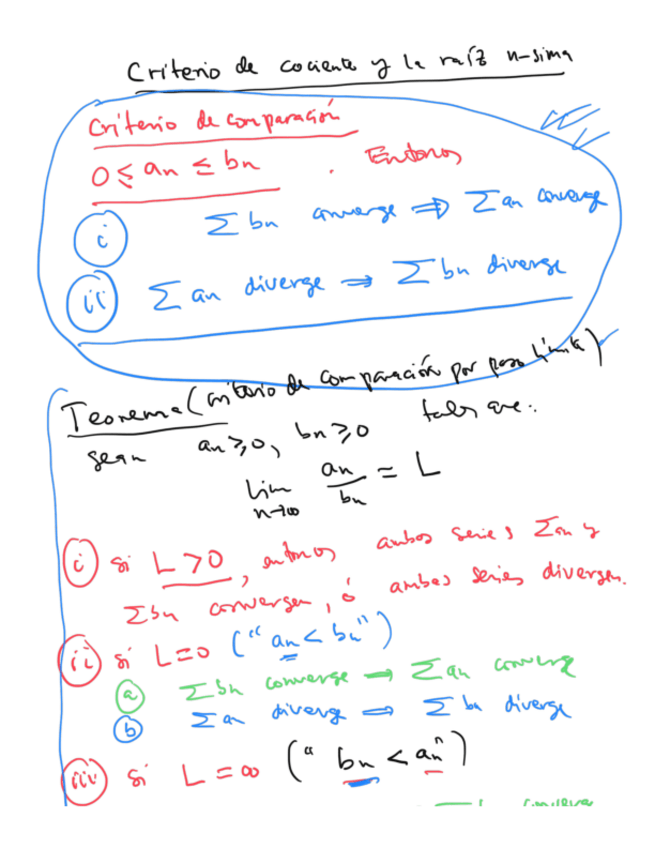 Criterio de cociente y la raíz n-sima
Criterio de comparación
0 ≤ an ≤ bn . Entonces
i Σ bn converge ⇒ Σ an converge
ii Σ an diverge ⇒ Σ bn diverge
Teorema (criterio de comparación por paso límite)
sean an ≥ 0, bn ≥ 0 tales que:
lim n→∞ an/bn = L
i si L > 0, entonces ambas series Σ an y
Σ bn convergen, ó ambas series divergen.
ii si L = 0 (" an < bn ")
a Σ bn converge → Σ an converge
b Σ an diverge ⇒ Σ bn diverge
iii si L = ∞ (" bn < an ")